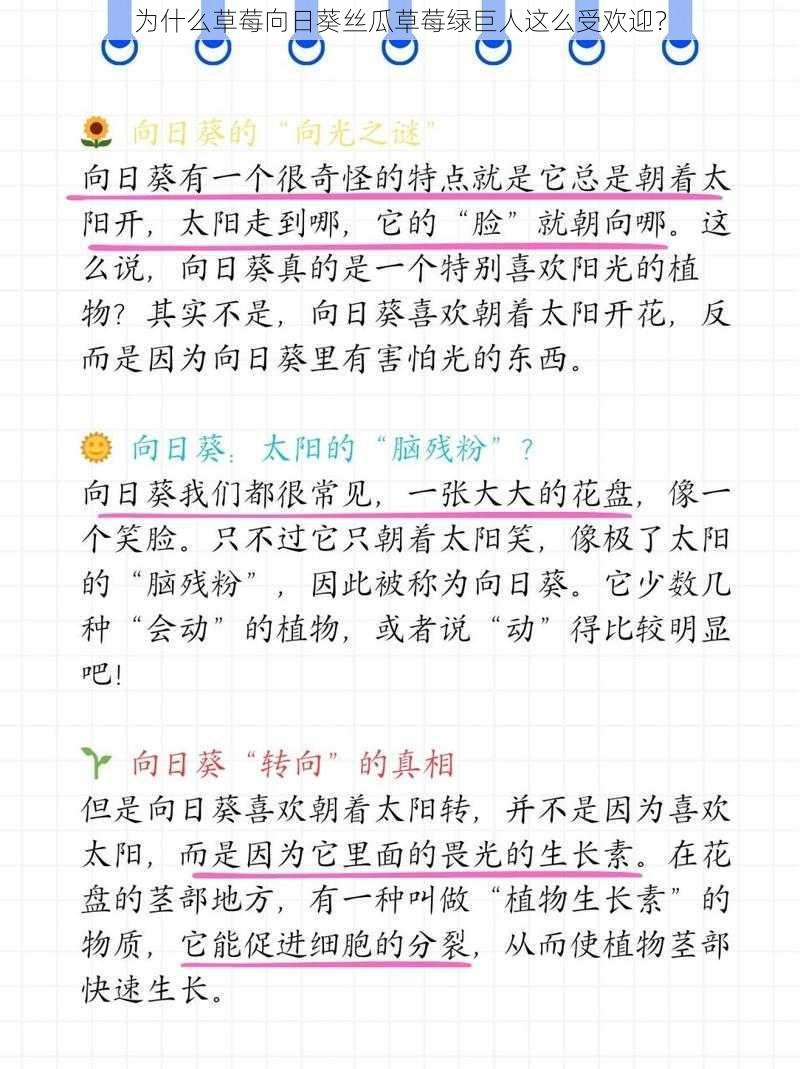 为什么草莓向日葵丝瓜草莓绿巨人这么受欢迎?
向日葵的“向光之谜”
向日葵有一个很奇怪的特点就是它总是朝着太
阳开，太阳走到哪，它的“脸”就朝向哪。这
么说，向日葵真的是一个特别喜欢阳光的植
物？其实不是，向日葵喜欢朝着太阳开花，反
而是因为向日葵里有害怕光的东西。
向日葵：太阳的“脑残粉”？
向日葵我们都很常见，一张大大的花盘，像一
个笑脸。只不过它只朝着太阳笑，像极了太阳
的“脑残粉”，因此被称为向日葵。它少数几
种“会动”的植物，或者说“动”得比较明显
吧！
向日葵“转向”的真相
但是向日葵喜欢朝着太阳转，并不是因为喜欢
太阳，而是因为它里面的畏光的生长素。在花
盘的茎部地方，有一种叫做“植物生长素”的
物质，它能促进细胞的分裂，从而使植物茎部
快速生长。